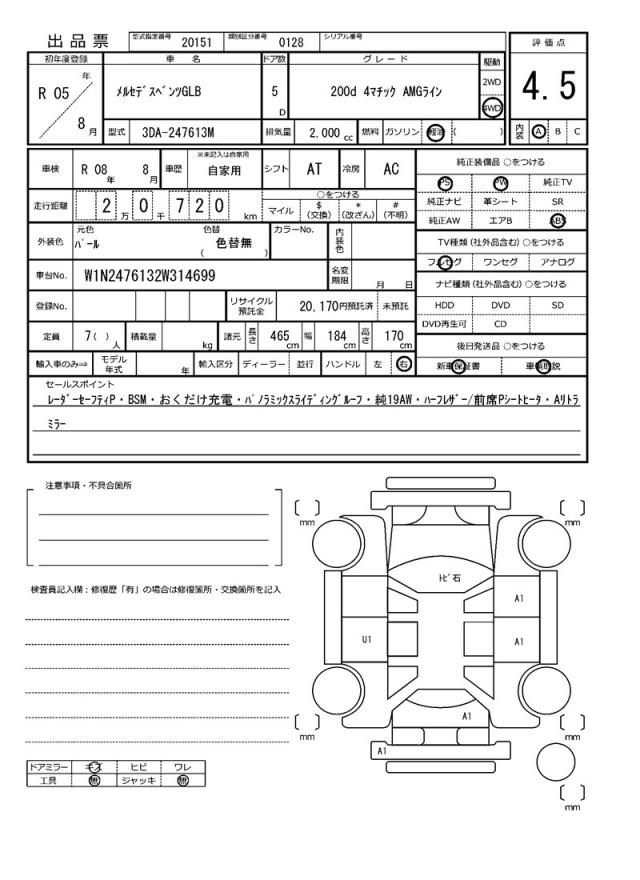 出品票 型式指定番号 20151 類別区分番号 0128 シリアル番号
初年度登録 車名 ドア数 グレード 駆動 評価点
R 05 年 8 月 メルセデスベンツGLB 5 D 200d 4マチック AMGライン 2WD 4WD 4.5
型式 3DA-247613M 排気量 2,000 cc 燃料 ガソリン 軽油 ( ) 内装 A B C
車検 R 08 年 8 月 車歴 ※未記入は自家用 自家用 シフト AT 冷房 AC
純正装備品 ○をつける
PS PW 純正TV
純正ナビ 革シート SR
純正AW エアB ABS
走行距離 2 万 0 千 7 2 0 km
○をつける
マイル $ (交換) * (改ざん) # (不明)
外装色 元色 パール 色替 色替無 ( ) カラーNo. 内装色
TV種類 (社外品含む) ○をつける
フルセグ ワンセグ アナログ
車台No. W1N2476132W314699 名変期限 月 日
ナビ種類 (社外品含む) ○をつける
HDD DVD SD
DVD再生可 CD
登録No. リサイクル預託金 20,170 円預託済 未預託
定員 7 ( ) 人 積載量 kg 諸元 長さ 465 cm 幅 184 cm 高さ 170 cm
後日発送品 ○をつける
新車保証書 車輌取説
輸入車のみ⇒ モデル年式 年 輸入区分 ディーラー 並行 ハンドル 左 右
セールスポイント
レーダーセーフティP・BSM・おくだけ充電・パノラミックスライディングルーフ・純19AW・ハーフレザー/前席Pシートヒータ・Aリトラ
ミラー
注意事項・不具合箇所
検査員記入欄：修復歴「有」の場合は修復箇所・交換箇所を記入
mm mm
トビ石
A1
U1 A1
A1
mm mm
A1
mm
ドアミラー キズ ヒビ ワレ
工具 無 ジャッキ 無